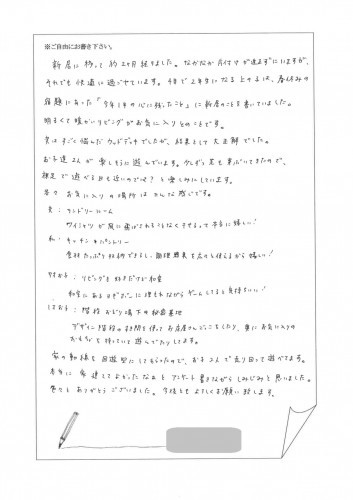 ※ご自由にお書き下さい。
新居に移って約2ヶ月経ちました。なかなか片付けが進まずにいますが、
それでも快適に過ごせています。今年で2年生になる上の子は、春休みの
宿題にあった「今年1年の心に残ったこと」に新居のことを書いていました。
明るくて暖かいリビングがお気に入りとのことです。
実はすごく悩んだウッドデッキでしたが、結果として大正解でした。
お子達2人が楽しそうに遊んでいます。少しずつ芝も芽ぶいてきたので、
裸足で遊べる日も近いのでは?と楽しみにしています。
各々お気に入りの場所はこんな感じです。
夫:ランドリールーム
ワイシャツが風に飛ばされることなくすせるって本当に嬉しい!
私:キッチン&パントリー
食材たっぷり収納できるし、調理器具を広々と使えるから嬉しい!
リビング
和室にある
ゲームしてると気持ちいい!
階段おどり場下の秘密基地
デザイン階段の
を使ってお店屋さんごっこをしたり、奥にお気に入りの
おもちゃを持っていき遊んでたりしてます。
家の動線を回遊型にしてもらったので、お子2人で走り回って遊べてます。
本当に家建ててよかったなぁとアンケート書きながらしみじみと思いました。
色々とありがとうございました。今後ともよろしくお願い致します。